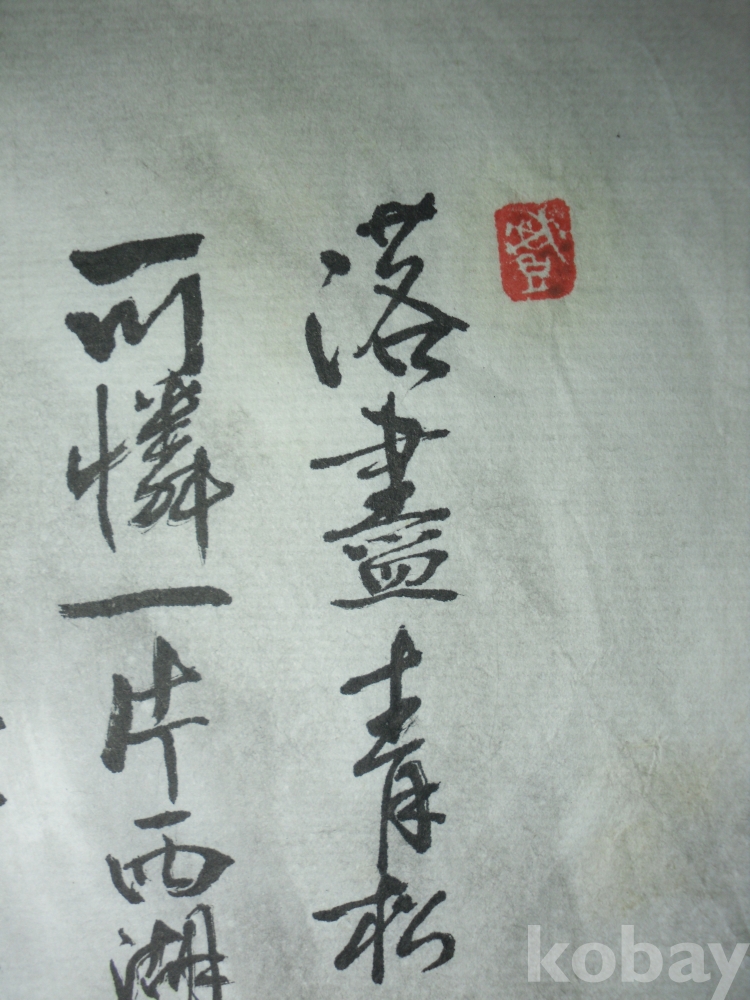 落盡青松
可憐一片西湖
kobay